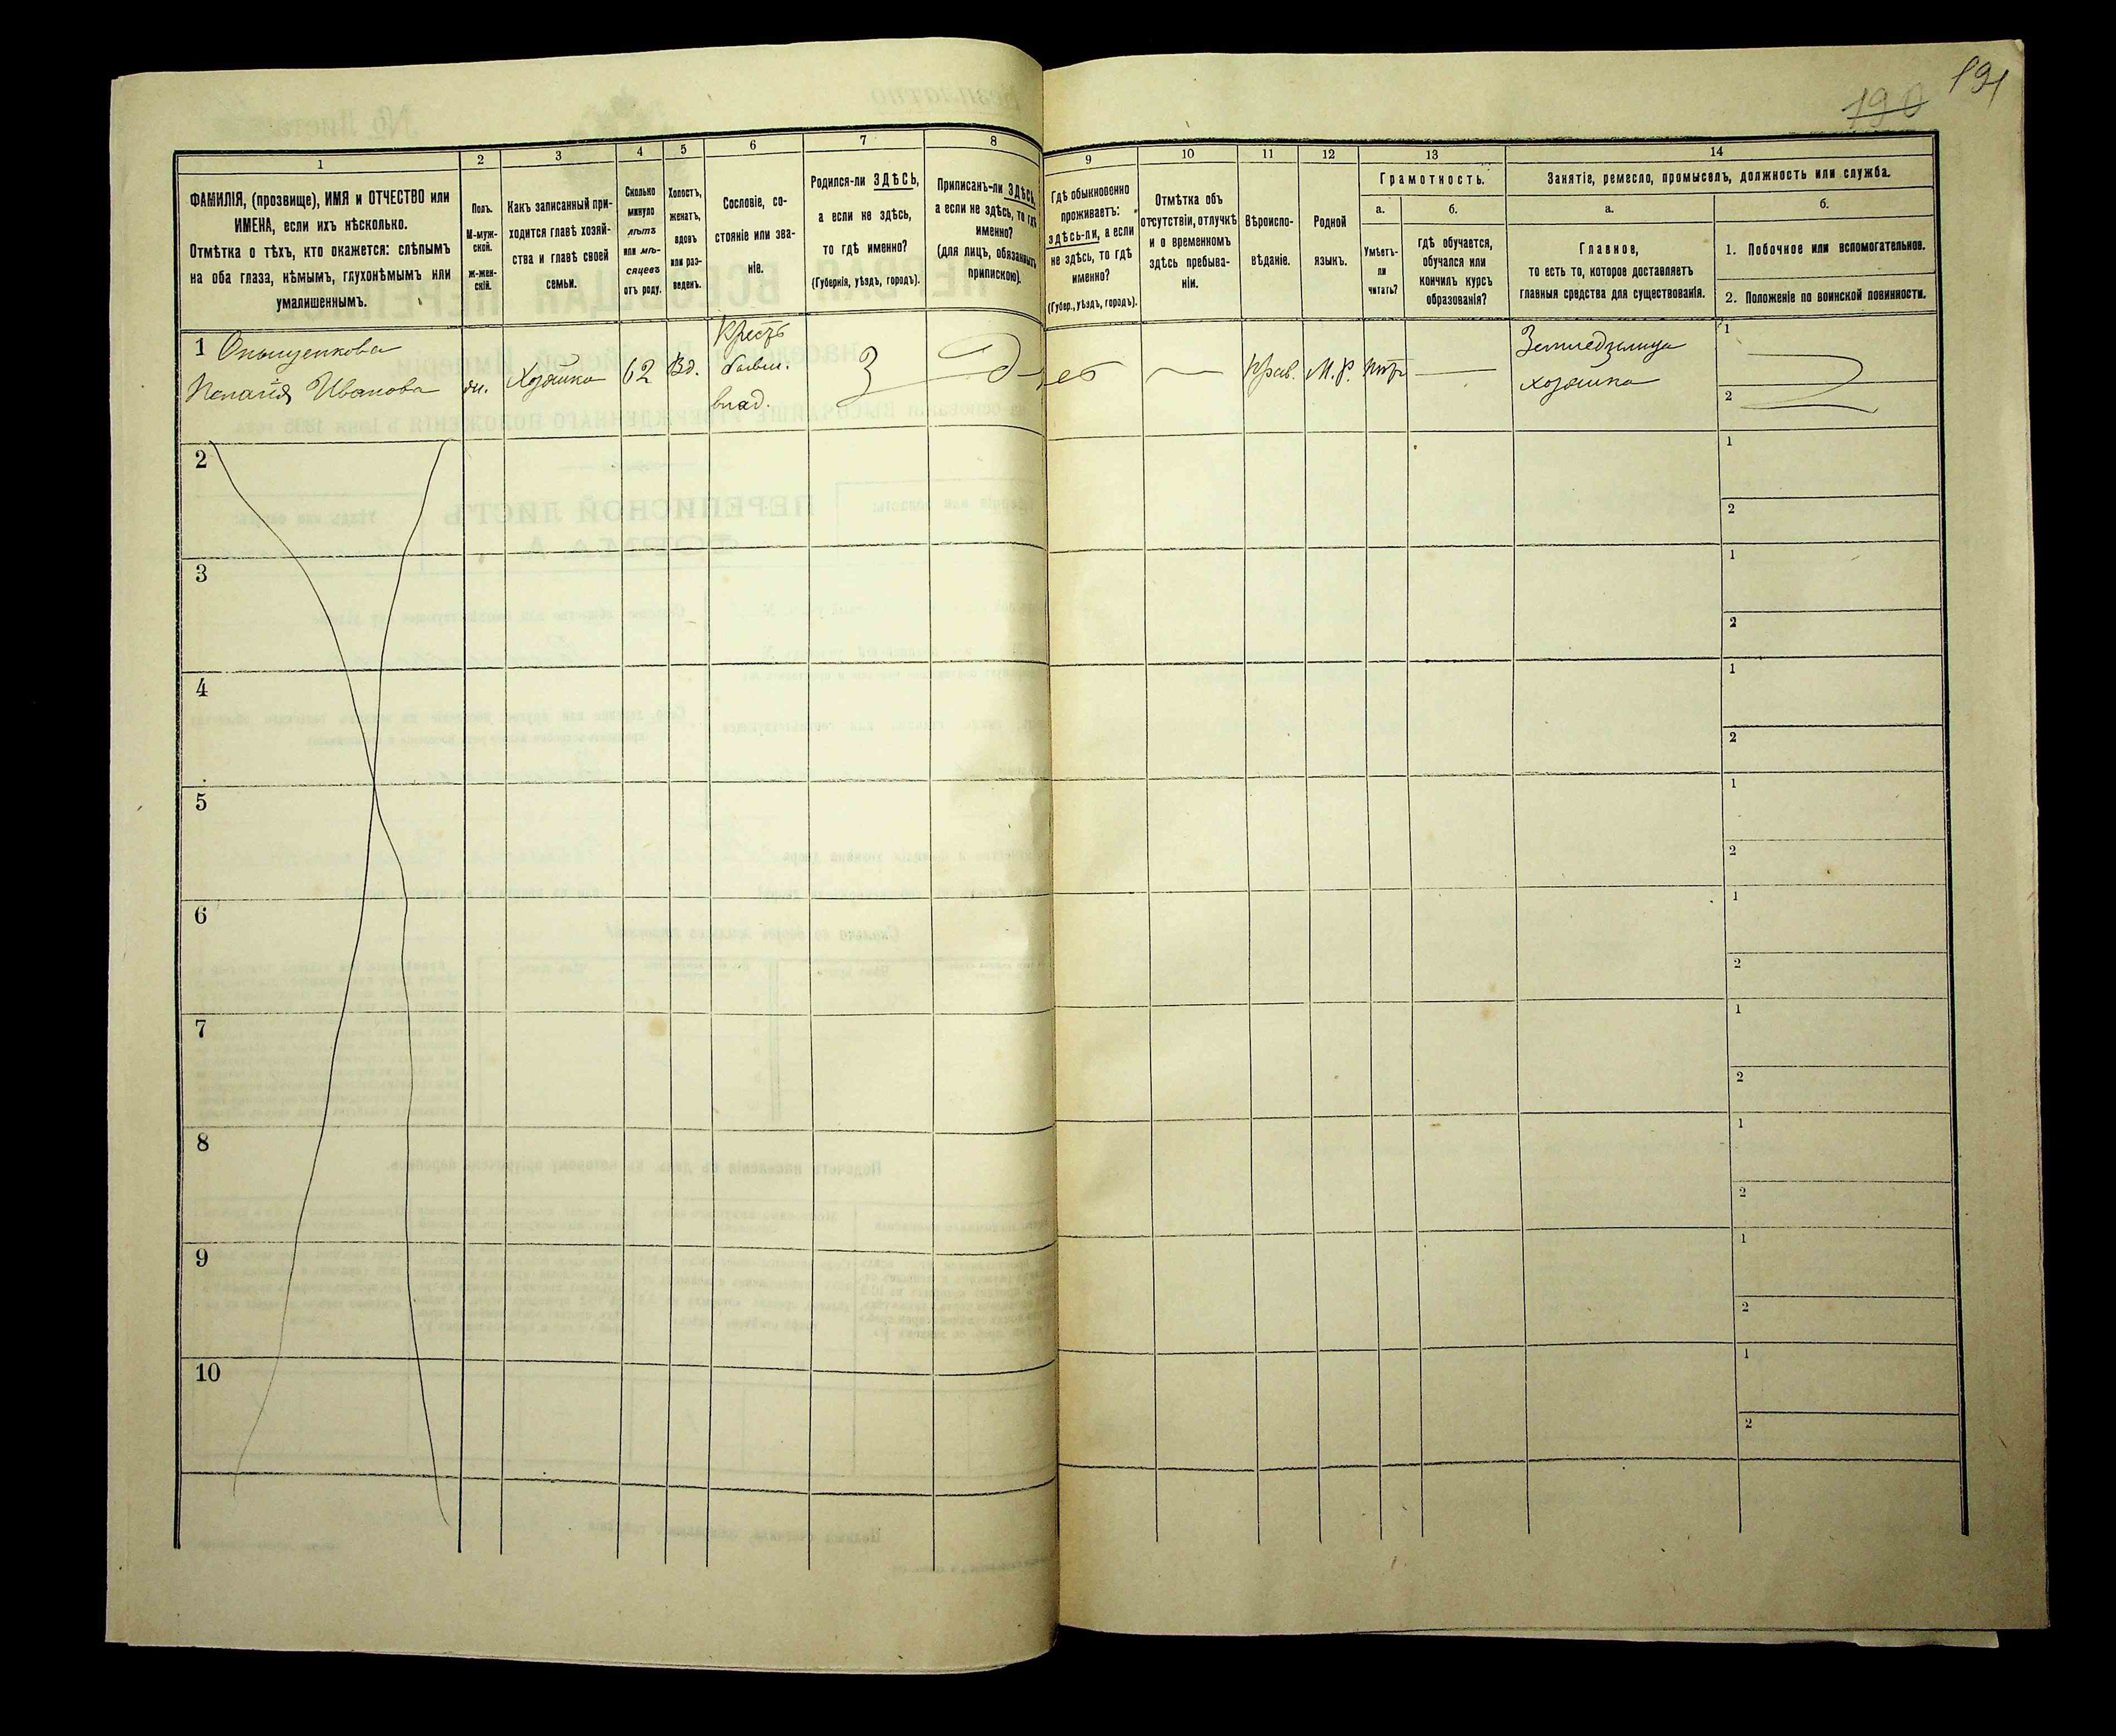 190
191
1
2
3
4
5
6
7
8
ФАМИЛІЯ, (прозвище), ИМЯ и ОТЧЕСТВО или
ИМЕНА, если ихъ нѣсколько.
Отмѣтка о тѣхъ, кто окажется: слѣпымъ
на оба глаза, нѣмымъ, глухонѣмымъ или
умалишеннымъ.
Полъ.
М-муж-
ской.
ж-жен-
скій.
Какъ записанный при-
ходится главѣ хозяй-
ства и главѣ своей
семьи.
Сколько
минуло
лѣтъ
или мѣ-
сяцевъ
отъ роду.
Холостъ,
женатъ,
вдовъ
или раз-
веденъ.
Сословіе, со-
стояніе или зва-
ніе.
Родился-ли ЗДѢСЬ,
а если не здѣсь,
то гдѣ именно?
(Губернія, уѣздъ, городъ).
Приписанъ-ли ЗДѢСЬ,
а если не здѣсь, то гдѣ
именно?
(для лицъ, обязанныхъ
припискою).
9
10
11
12
13
14
Гдѣ обыкновенно
проживаетъ:
здѣсь-ли, а если
не здѣсь, то гдѣ
именно?
(Губер., уѣздъ, городъ).
Отмѣтка объ
отсутствіи, отлучкѣ
и о временномъ
здѣсь пребыва-
ніи.
Вѣроиспо-
вѣданіе.
Родной
языкъ.
Грамотность.
а.
Умѣетъ-
ли
читать?
б.
гдѣ обучается,
обучался или
кончилъ курсъ
образованія?
Занятіе, ремесло, промыселъ, должность или служба.
а.
Главное,
то есть то, которое доставляетъ
главныя средства для существованія.
б.
1. Побочное или вспомогательное.
2. Положеніе по воинской повинности.
1 Онищенкова
Ивановa
жи.
Хозяйка
62
Вд.
Крестъ
бывш.
влад.
З
Прав.
М.Р.
нѣтъ
Земледѣлица
хозяйка
1
2
2
1
2
3
1
2
4
1
2
5
1
2
6
1
2
7
1
2
8
1
2
9
1
2
10
1
2